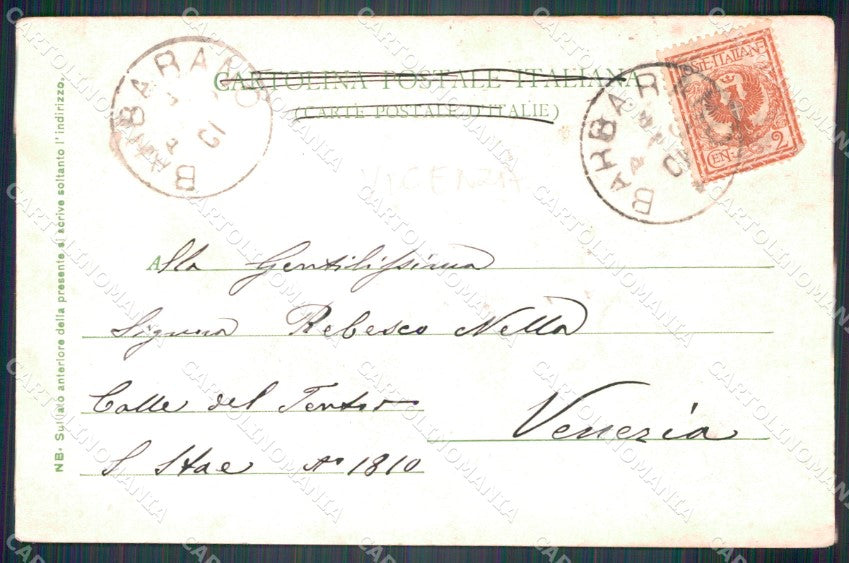 CARTOLINA POSTALE ITALIANA
(CARTE POSTALE D'ITALIE)
BARBARANO
01
BARBARANO
01
POSTE ITALIANE
CEN. 2
VICENZA
Alla Gentilissima
Signora Rebesco Nella
Calle del
S Stae No 1810
Venezia
NB. Sul lato anteriore della presente si scrive soltanto l'indirizzo.
CARTOLINOMANIA